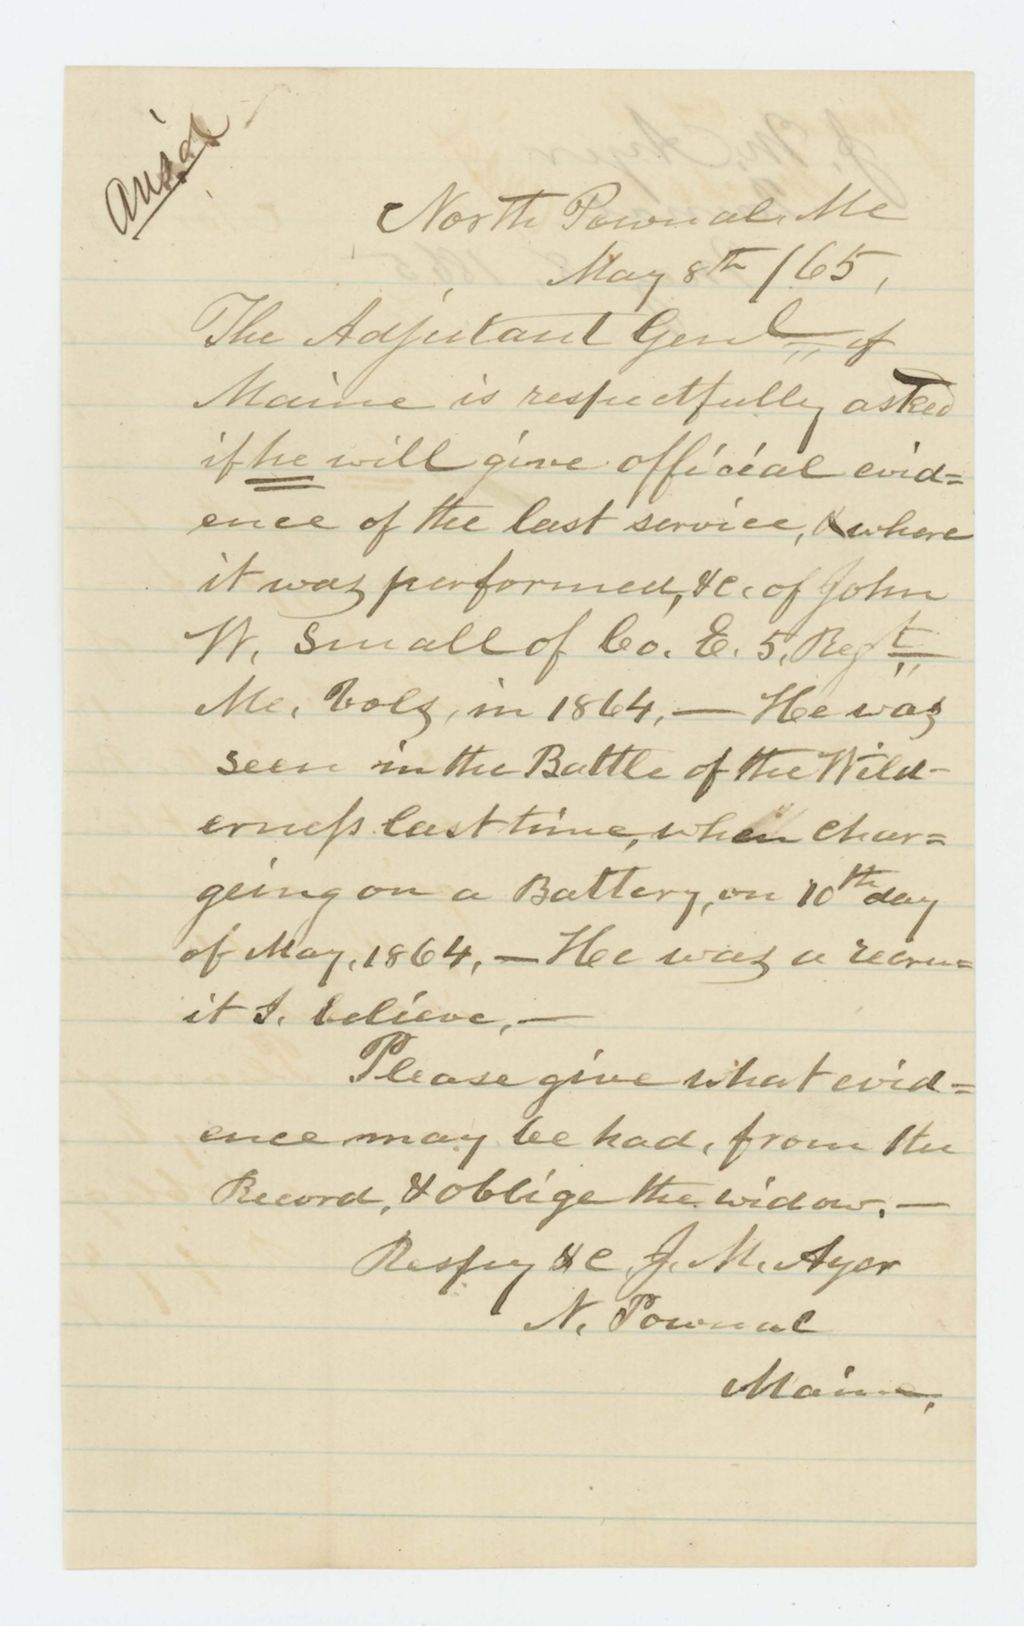 ans'd
North Pownal, Me
May 8th /65,
The Adjutant Genl of
Maine is respectfully asked
if he will give official evid=
ence of the last service, & where
it was performed, &c. of John
W. Small of Co. E. 5, Regt
Me. Vols, in 1864, — He was
seen in the Battle of the Wild-
erness last time, when char=
geing on a Battery, on 10th day
of May, 1864, — He was a recru=
it I. believe, —
Please give what evid=
ence may be had, from the
Record, & oblige the widow. —
Respy &c J. M. Ayer
N. Pownal
Maine.